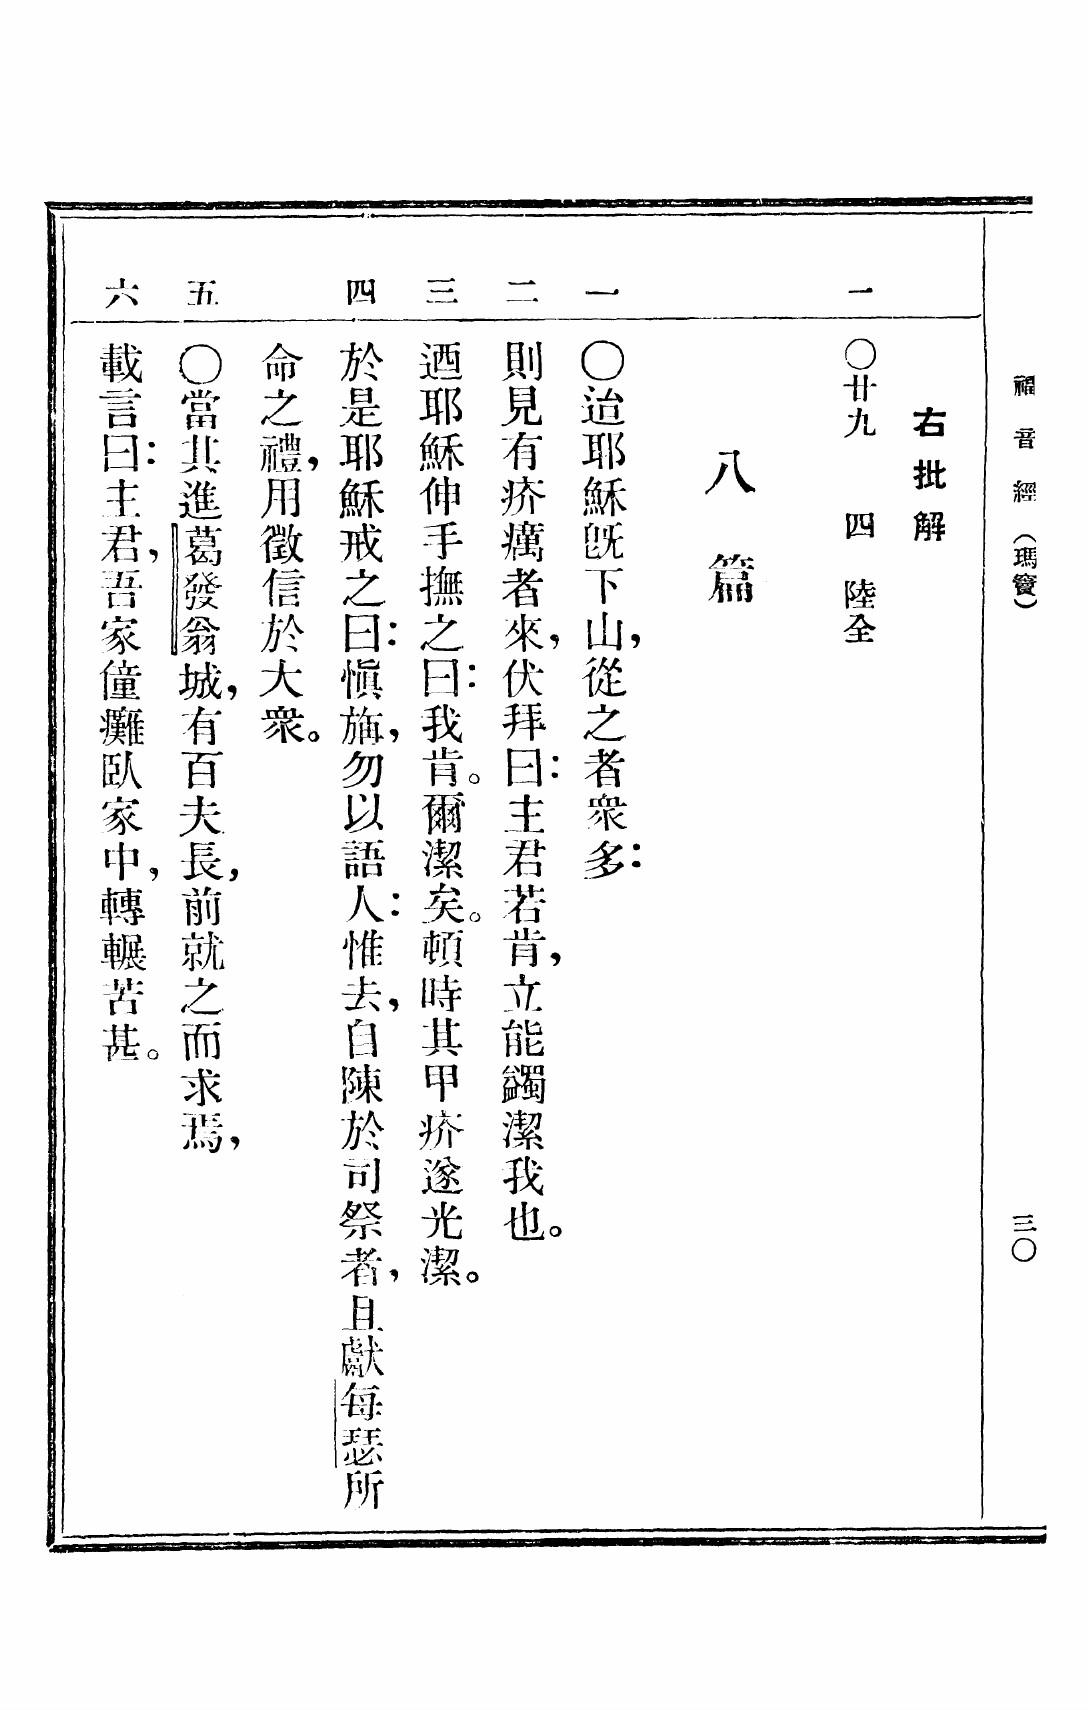 福音經(瑪竇)
三〇
右批解
一 〇廿九 四 陸全
八篇
一 〇迨耶穌旣下山,從之者衆多:
二 則見有疥癘者來,伏拜曰:主君若肯,立能蠲潔我也。
三 迺耶穌伸手撫之曰:我肯。爾潔矣。頓時其甲疥遂光潔。
四 於是耶穌戒之曰:愼旃,勿以語人:惟去,自陳於司祭者,且獻每瑟所
命之禮,用徵信於大衆。
五 〇當其進葛發翁城,有百夫長,前就之而求焉,
六 載言曰:主君,吾家僮癱臥家中,轉輾苦甚。